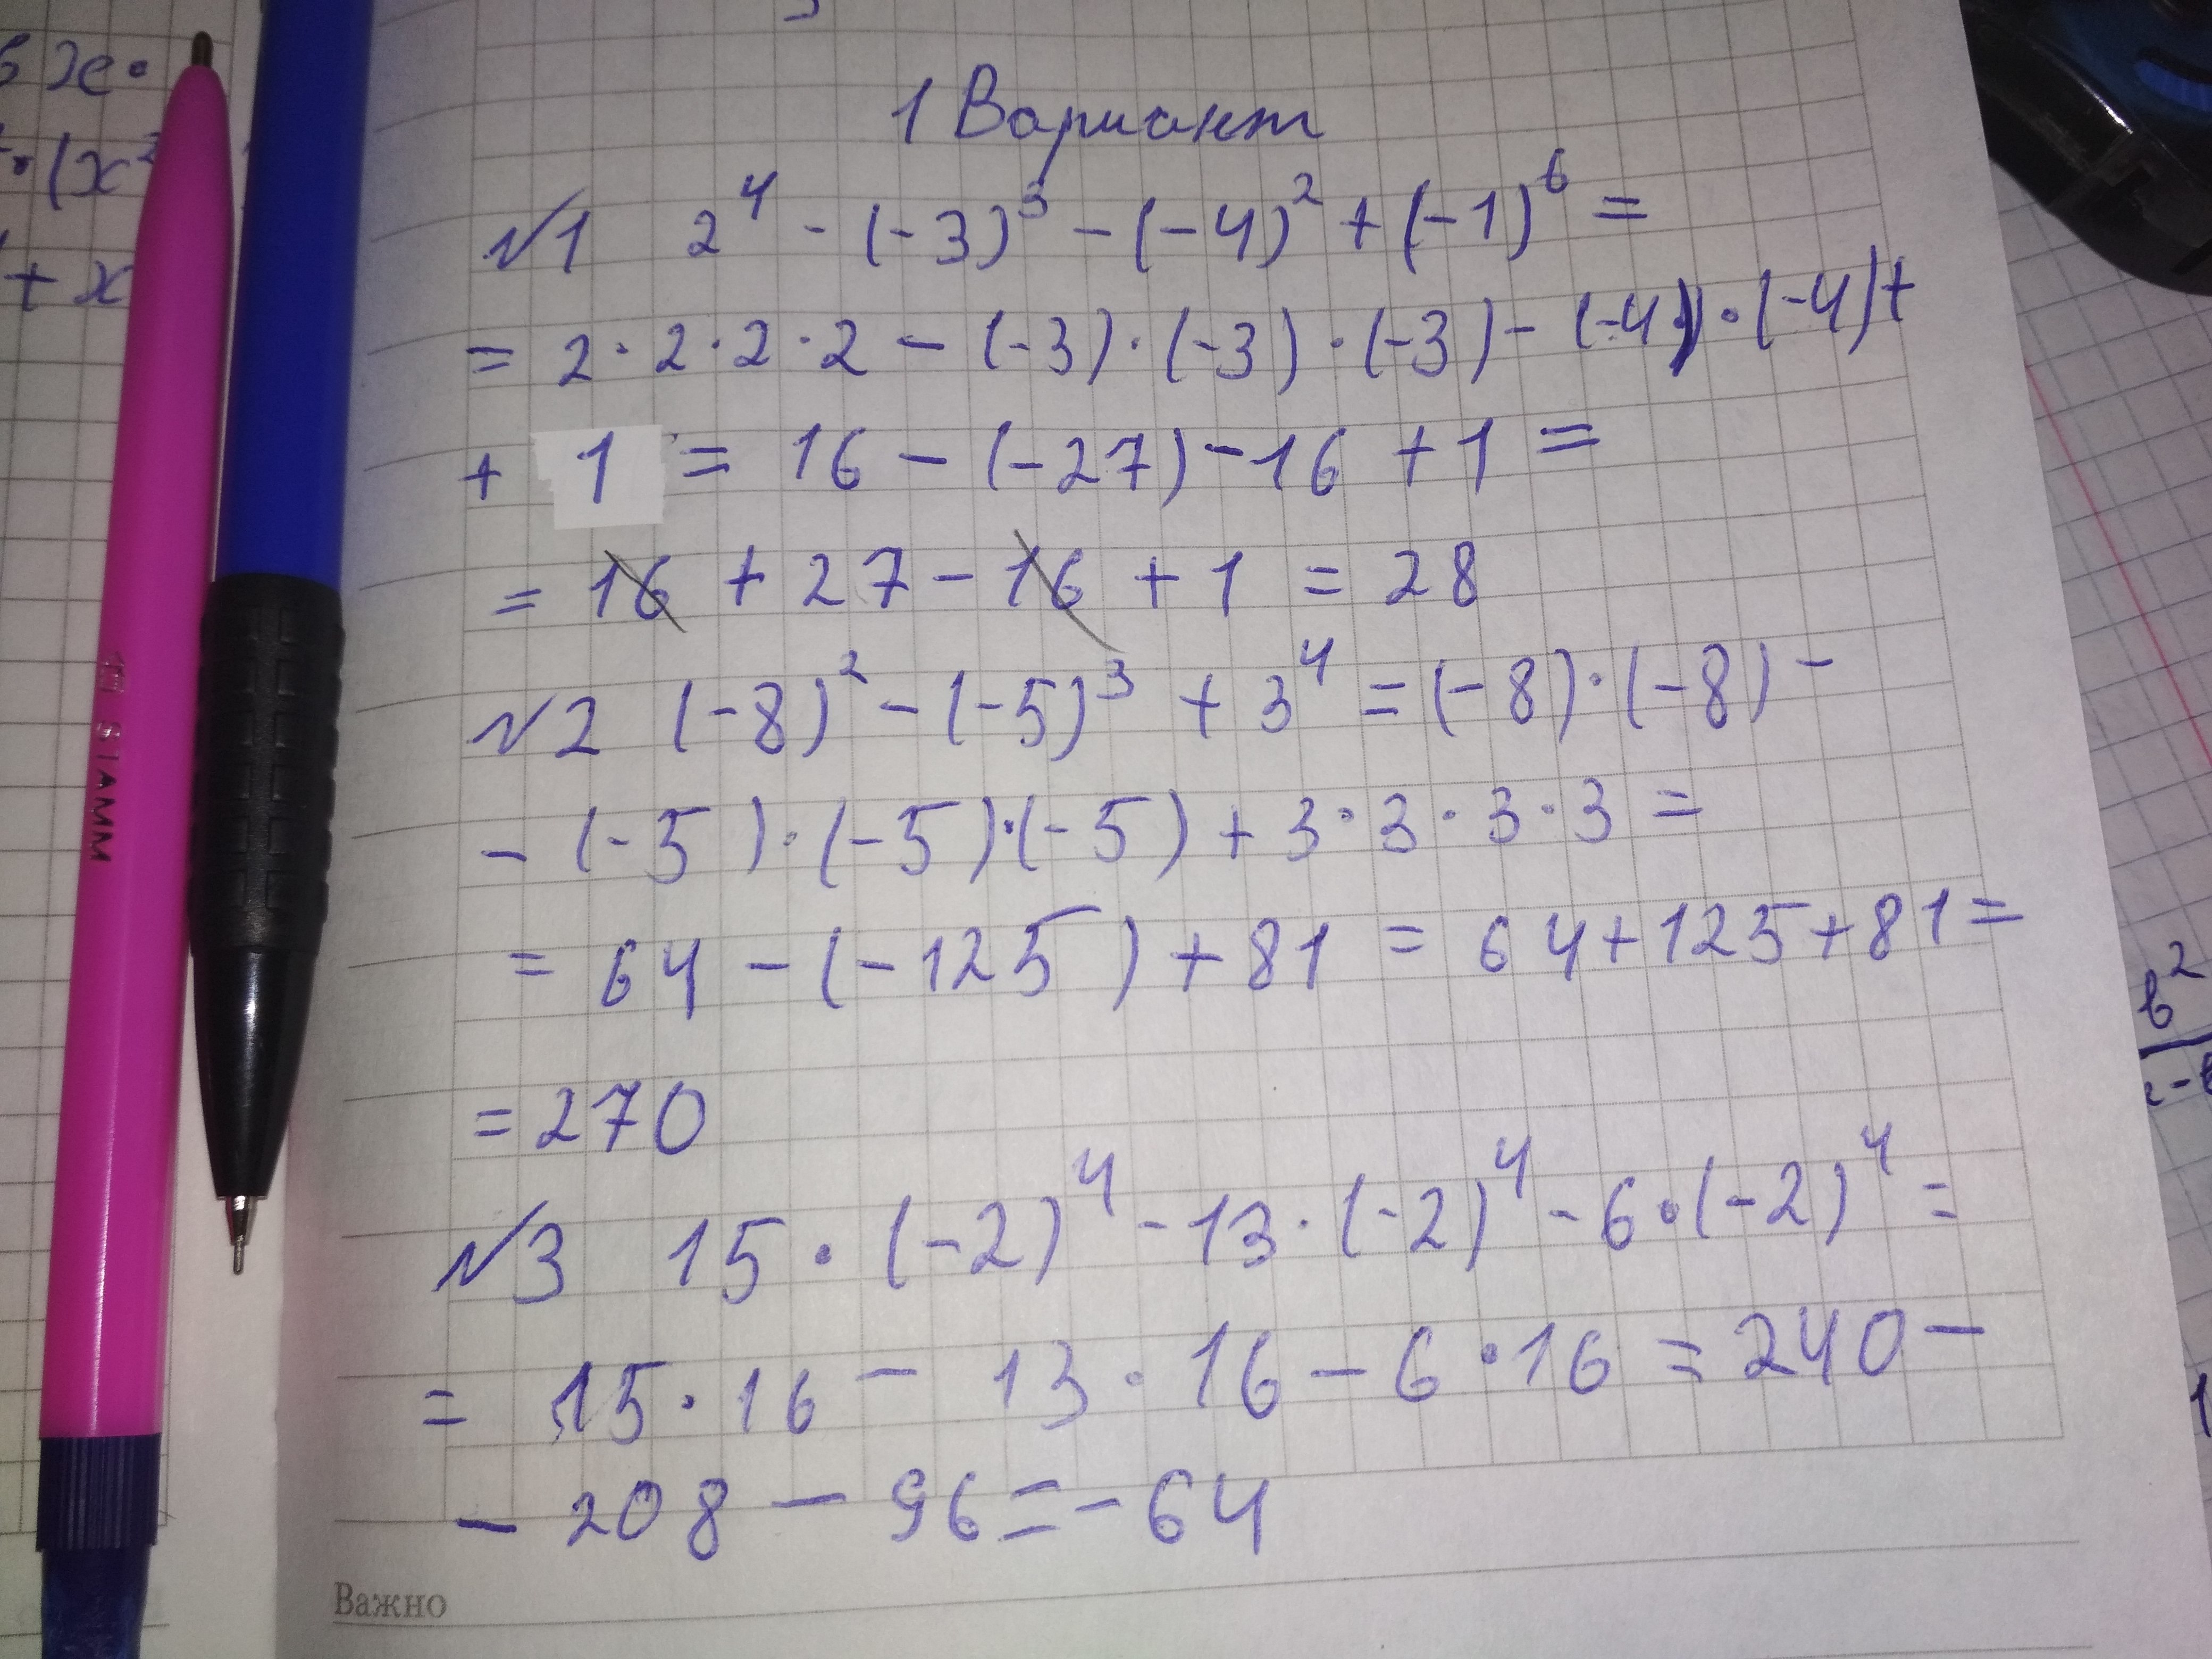 1 Вариант
№1 2⁴ - (-3)³ - (-4)² + (-1)⁶ =
= 2 · 2 · 2 · 2 - (-3) · (-3) · (-3) - (-4) · (-4) +
+ 1 = 16 - (-27) - 16 + 1 =
= 16 + 27 - 16 + 1 = 28
№2 (-8)² - (-5)³ + 3⁴ = (-8) · (-8) -
- (-5) · (-5) · (-5) + 3 · 3 · 3 · 3 =
= 64 - (-125) + 81 = 64 + 125 + 81 =
= 270
№3 15 · (-2)⁴ - 13 · (-2)⁴ - 6 · (-2)⁴ =
= 15 · 16 - 13 · 16 - 6 · 16 = 240 -
- 208 - 96 = - 64
Важно
STAMM
+ x
b²